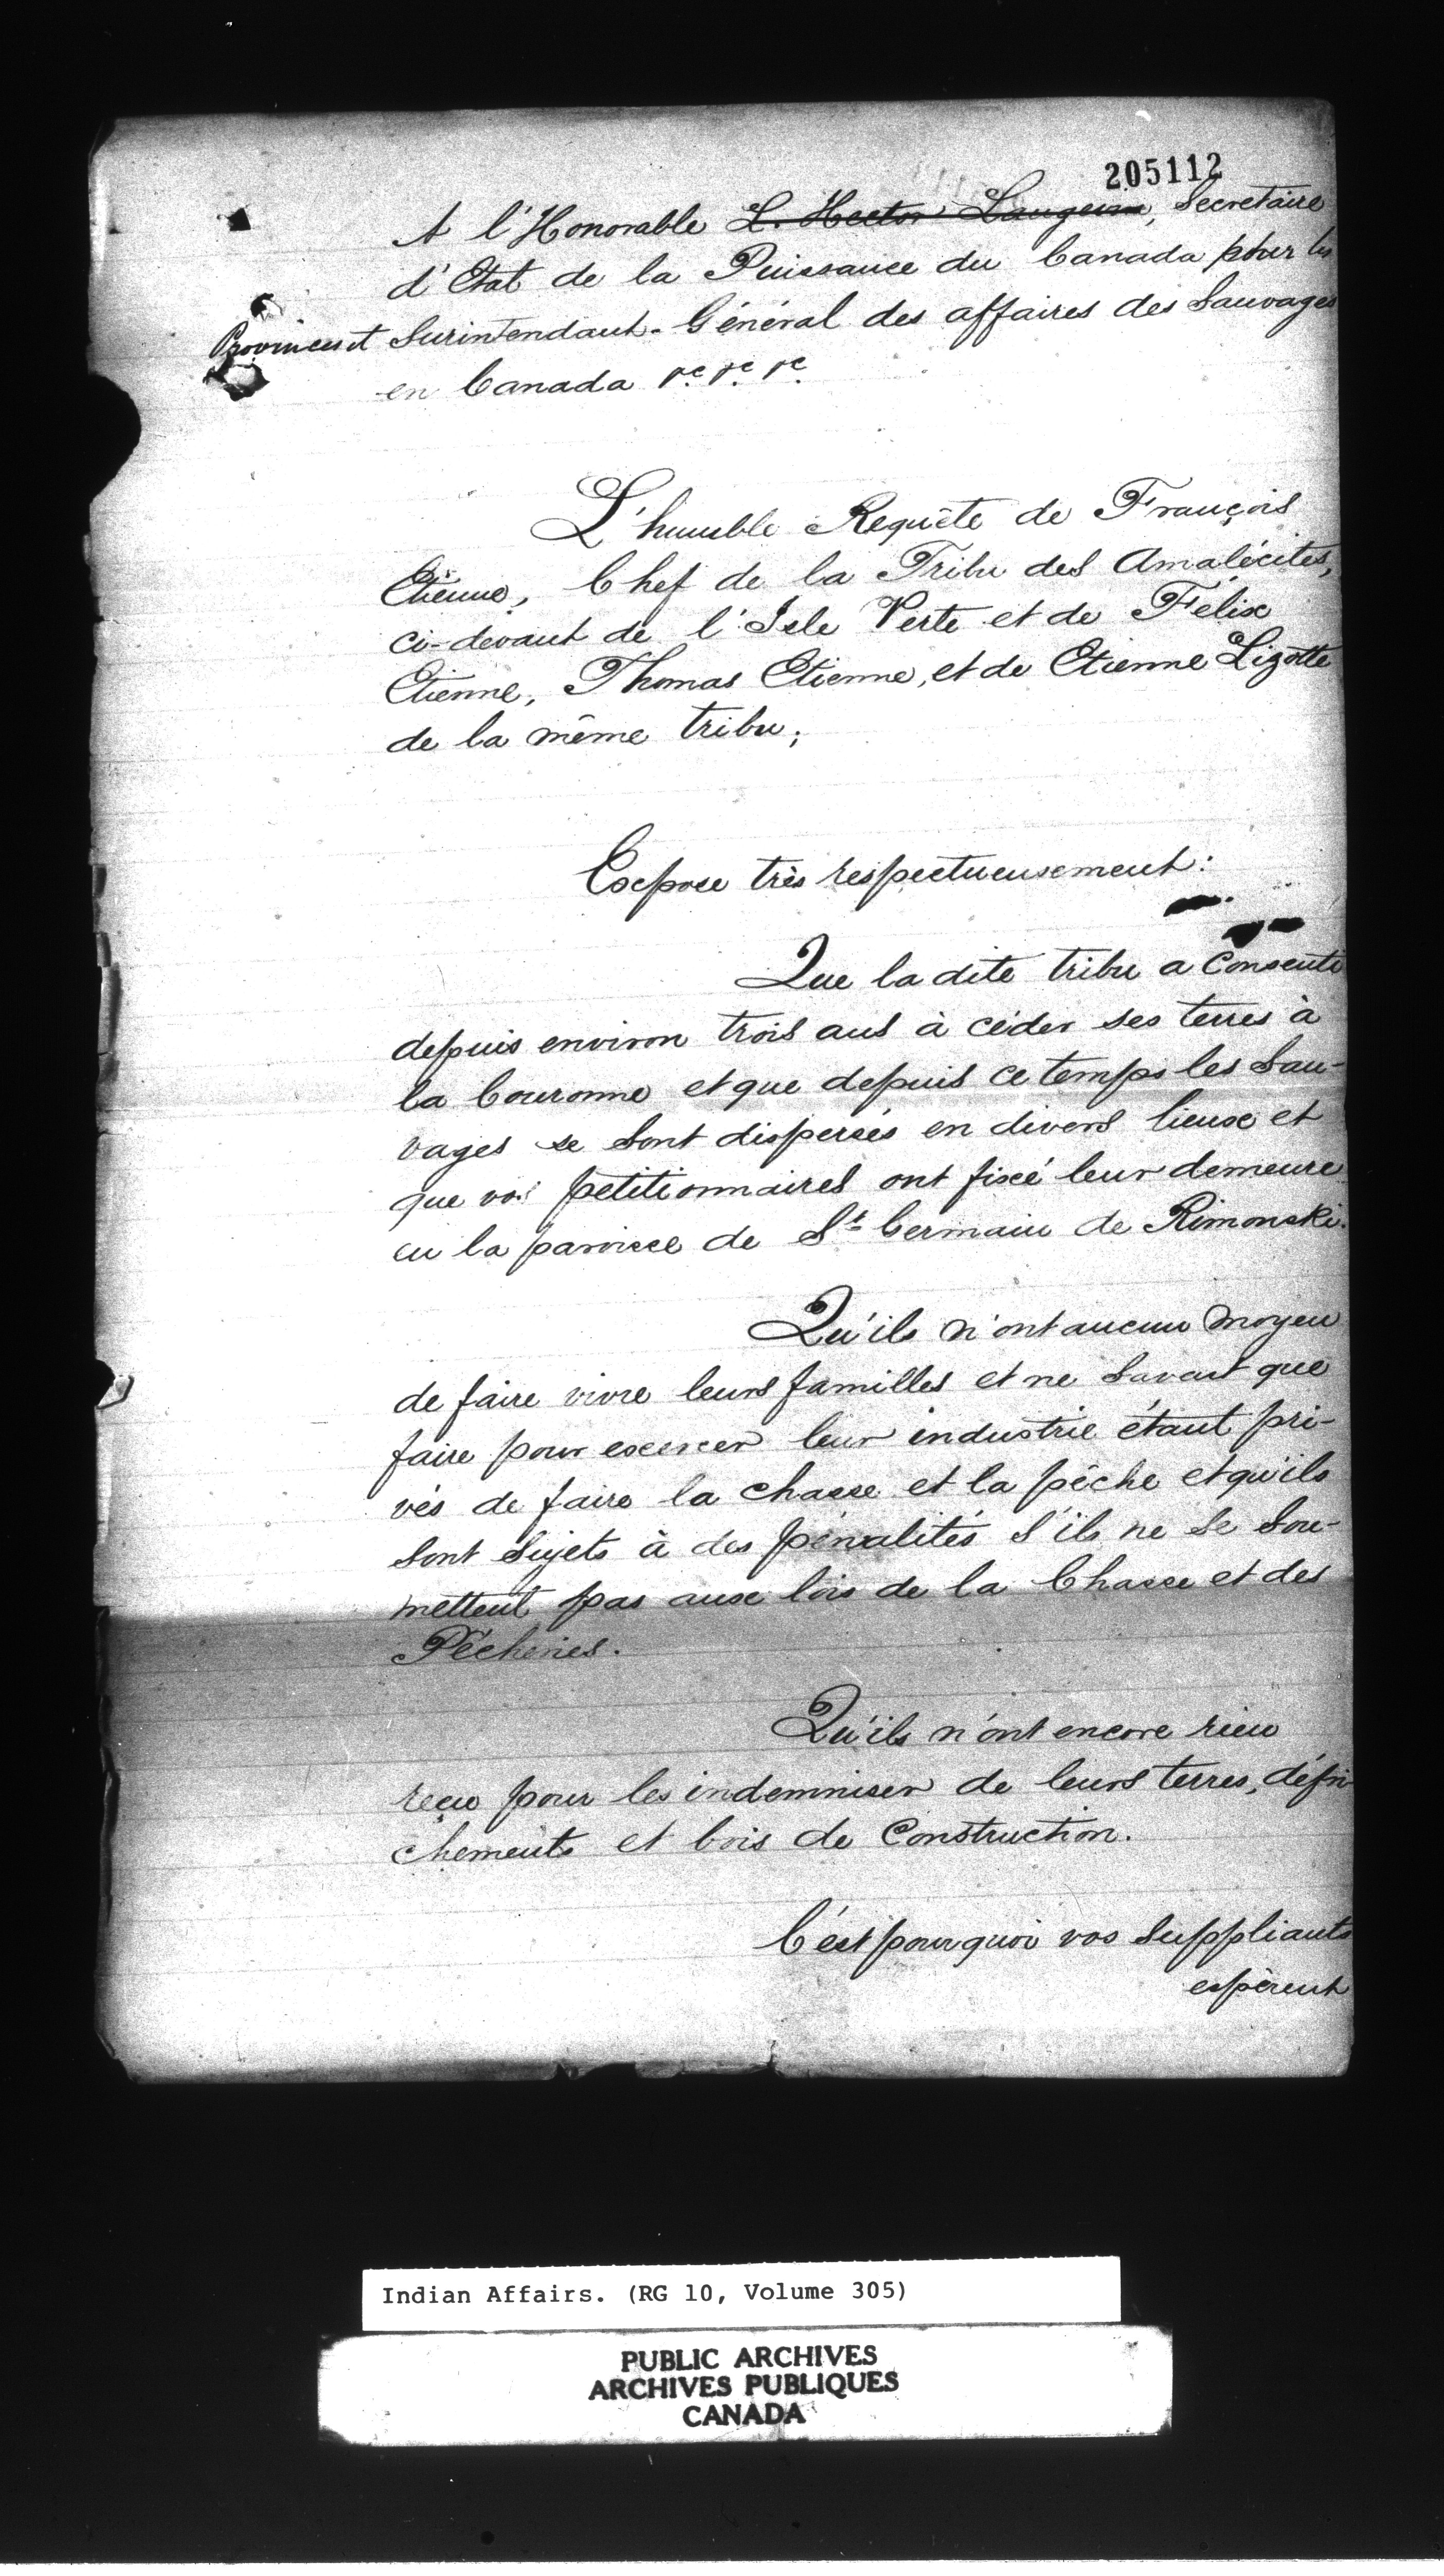 205112
A l'Honorable L. Hector Langevin, Secretaire
d'Etat de la Puissance du Canada pour les
Provinces et Surintendant-Général des affaires des Sauvages
en Canada &c &c &c
L'humble Requête de François
Etienne, Chef de la Tribu des Amalécites,
ci-devant de l'Isle Verte et de Félix
Etienne, Thomas Etienne, et de Etienne Lizotte
de la même tribu;
Expose très respectueusement:
Que la dite tribu a consenti
depuis environ trois ans à céder ses terres à
la Couronne et que depuis ce temps les Sau-
vages se sont dispersés en divers lieux et
que vos petitionnaires ont fixé leur demeure
en la paroisse de St Germain de Rimouski.
Qu'ils n'ont aucun moyen
de faire vivre leurs familles et ne savent que
faire pour exercer leur industrie étant pri-
vés de faire la chasse et la pêche et qu'ils
sont sujets à des pénalités s'ils ne se sou-
mettent pas aux lois de la Chasse et des
Pêcheries.
Qu'ils n'ont encore rien
reçu pour les indemniser de leurs terres, défri
chements et bois de Construction.
C'est pourquoi vos suppliants
espèrent
Indian Affairs. (RG 10, Volume 305)
PUBLIC ARCHIVES
ARCHIVES PUBLIQUES
CANADA